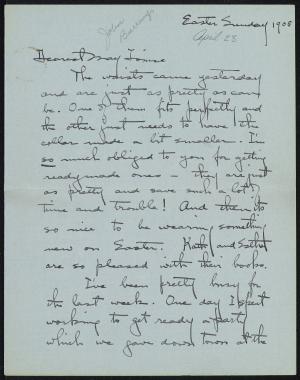 John
Barony
Easter Sunday 1908
April 23
Dearest May Louise
The waists came yesterday
and are just as pretty as can
be. One of them fits perfectly and
the other just needs to have the
collar made a bit smaller. I'm
so much obliged to you for getting
readymade ones - they are just
as pretty and save such a lot of
time and trouble! And then its
so nice to be wearing something
new on Easter. Kath, and Esther
are so pleased with their books.
I've been pretty busy for
the last week. One day I spent
working to get ready a party
which we gave down town at the